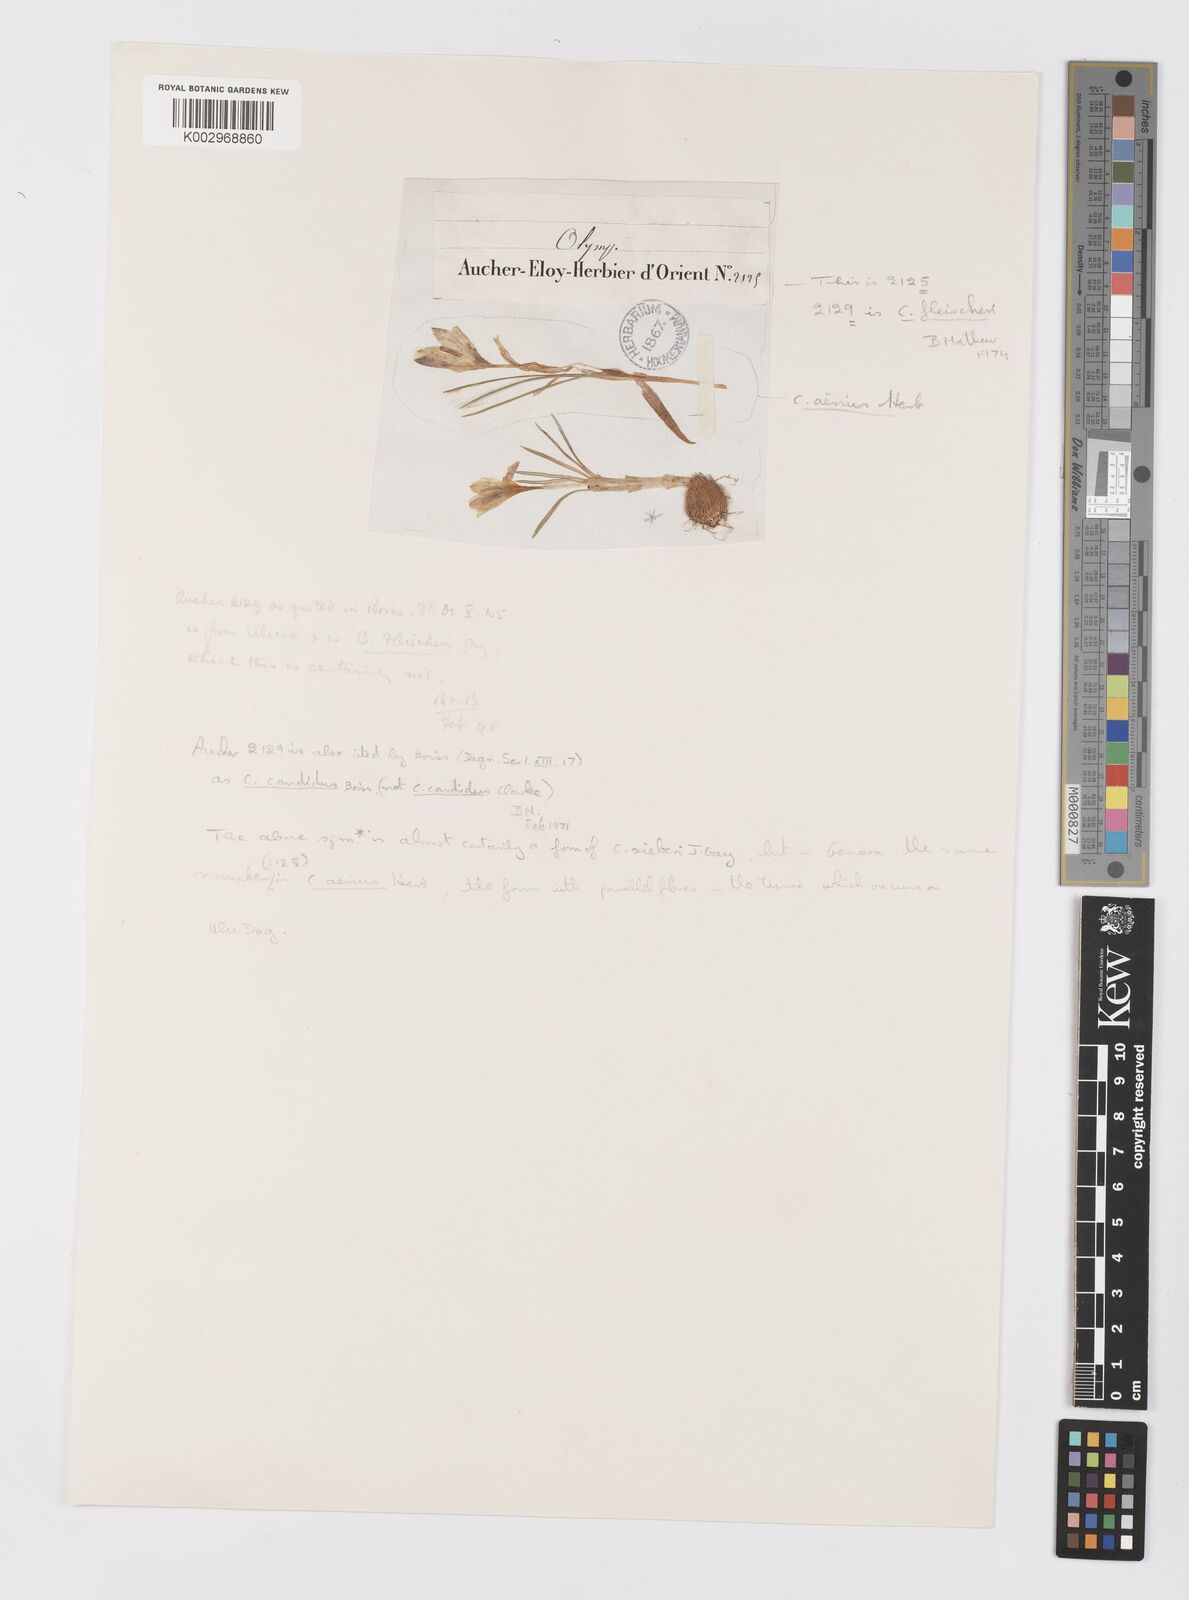 ROYAL BOTANIC GARDENS KEW
K002968860
Olymp.
Aucher-Eloy-Herbier d'Orient N° 2125
HERBARIUM HOOKERIANUM
1867
— This is 2125
2129 is C. fleischeri
B Mathew
1974
C. aërius Herb
Aucher 2129 as quoted in Boiss. Fl. Or. V. 105
is from Cilicia & is C. Fleischeri Gay,
which this is certainly not.
Feb. 48
Aucher 2129 is also cited by Boiss (Diagn Ser 1. XIII. 17)
as C. candidus Boiss. (not C. candidus Clarke)
BM.
Feb 1971
The above spm* is almost certainly a form of C. sieberi J. Gay, but in Geneva the same
number (2125) is C. aerius Herb, the form with parallel fibres – the tunic which occurs on
Ulu Dag.
*
inches
centimeters
Density
Don Williams
M000827
Kew
Royal Botanic Gardens
copyright reserved
10
9
8
7
6
5
4
3
2
1
0
cm